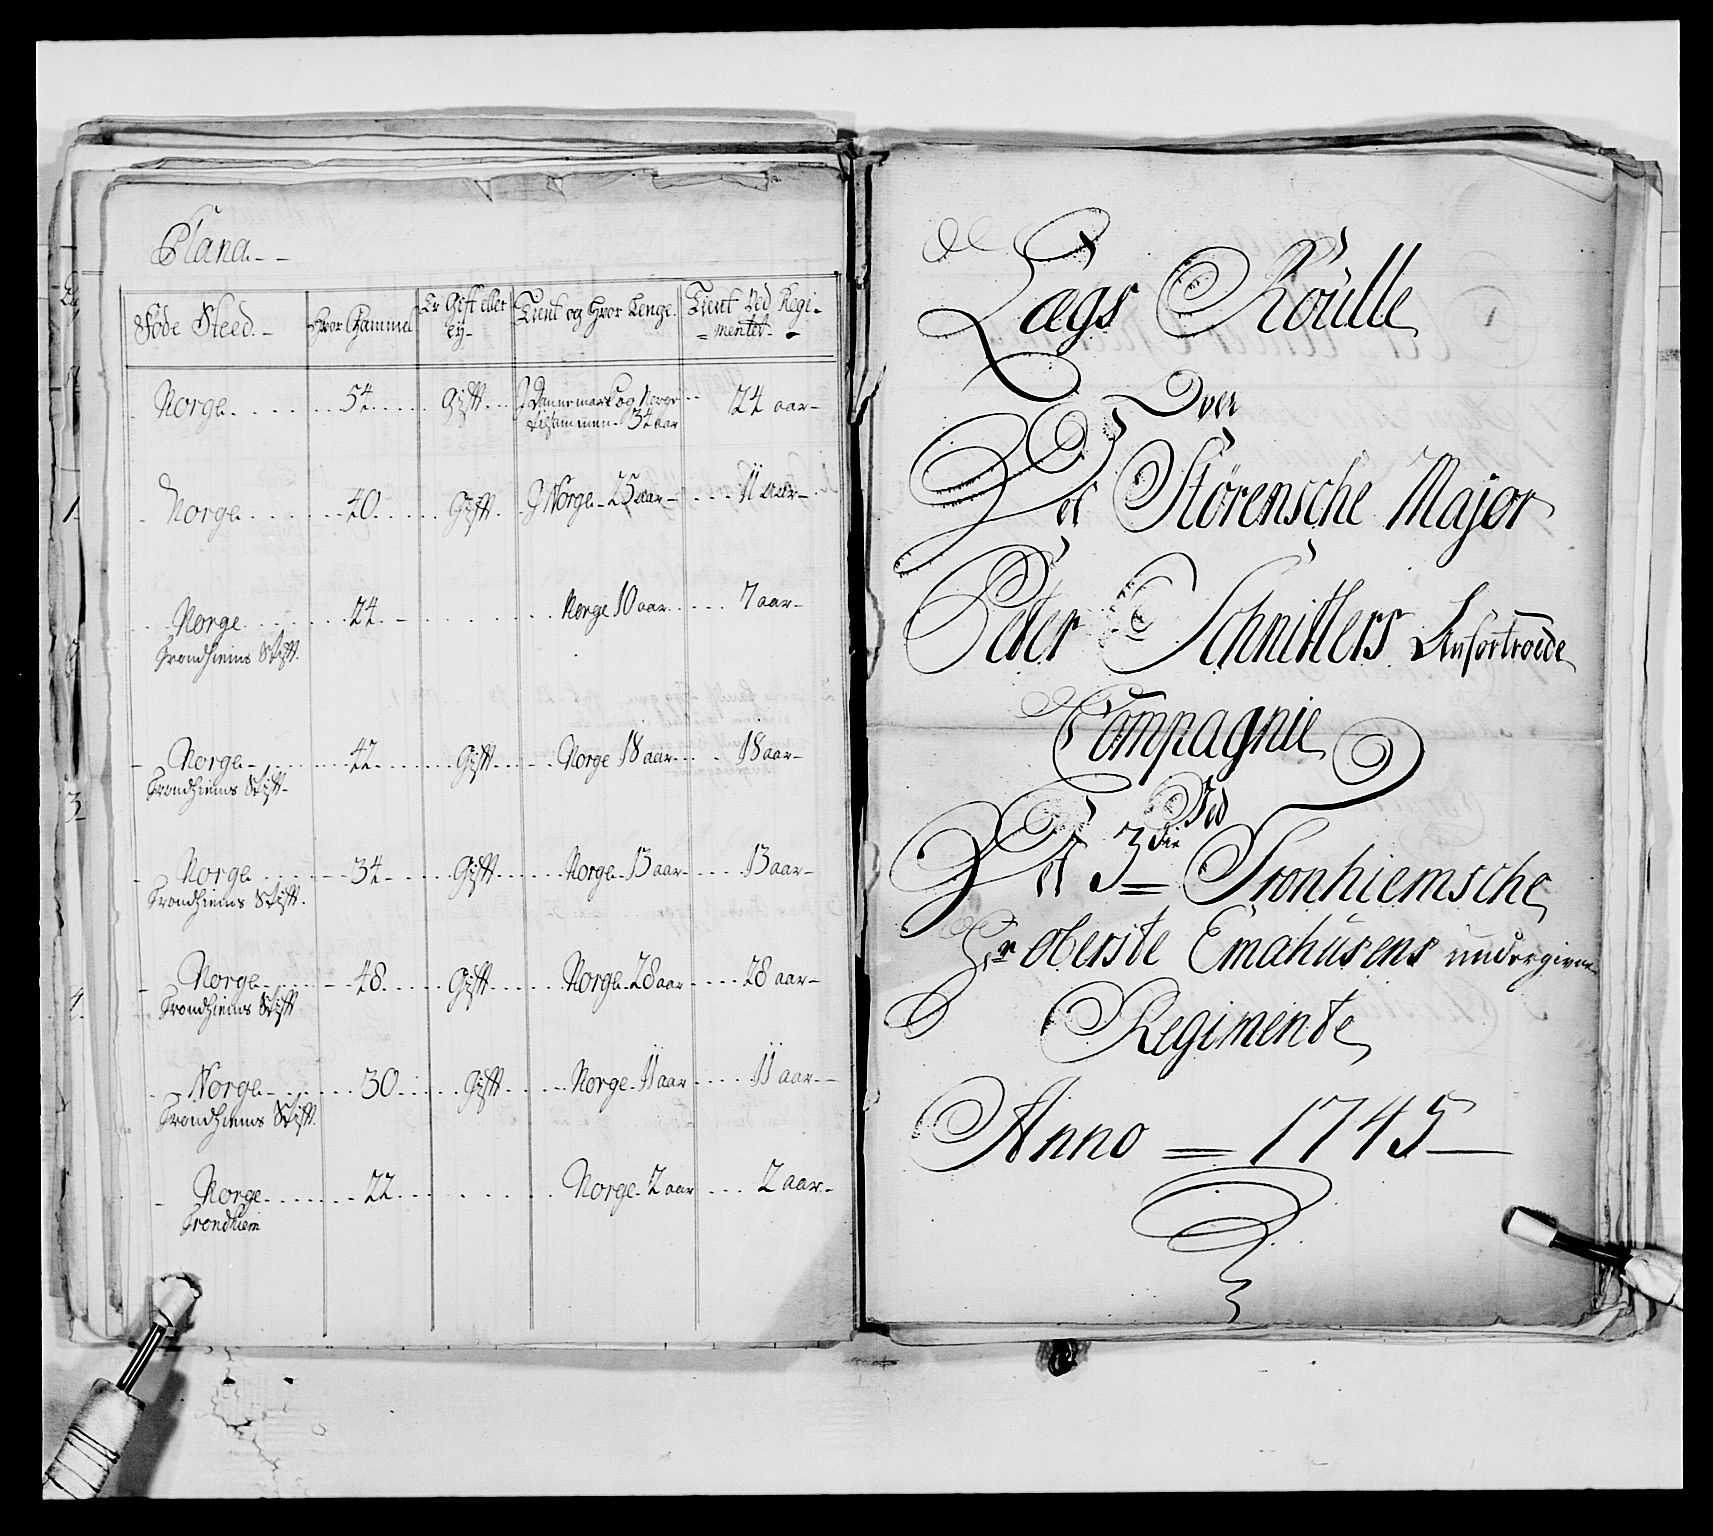 Plana
Føde Steed.
Hvor Gammel
Er Gift eller
ey
Tient og Hvor Lenge.
Tient Ved Regi-
mentet
Norge 54 Gift I Dannemark og Norge 24 aar
tilsammen 34 aar
Norge 40 Gift I Norge 25 aar 11 aar
Norge 24 Norge 10 aar 7 aar
Trondhiems Stift
Norge 42 Gift Norge 18 aar 18 aar
Trondhiems Stift
Norge 34 Gift Norge 13 aar 13 aar
Trondhiems Stift
Norge 48 Gift Norge 28 aar 28 aar
Trondhiems Stift
Norge 30 Gift Norge 11 aar 11 aar
Trondhiems Stift
Norge 22 Norge 2 aar 2 aar
Trondhiem
Lægs Roulle
Over
Det Störensche Major
Peter Schnitlers Anfortroede
Compagnie
Ved
Det 3die Tronhiemsche
Hr oberste Emahusens undergivne
Regimente
Anno = 1745